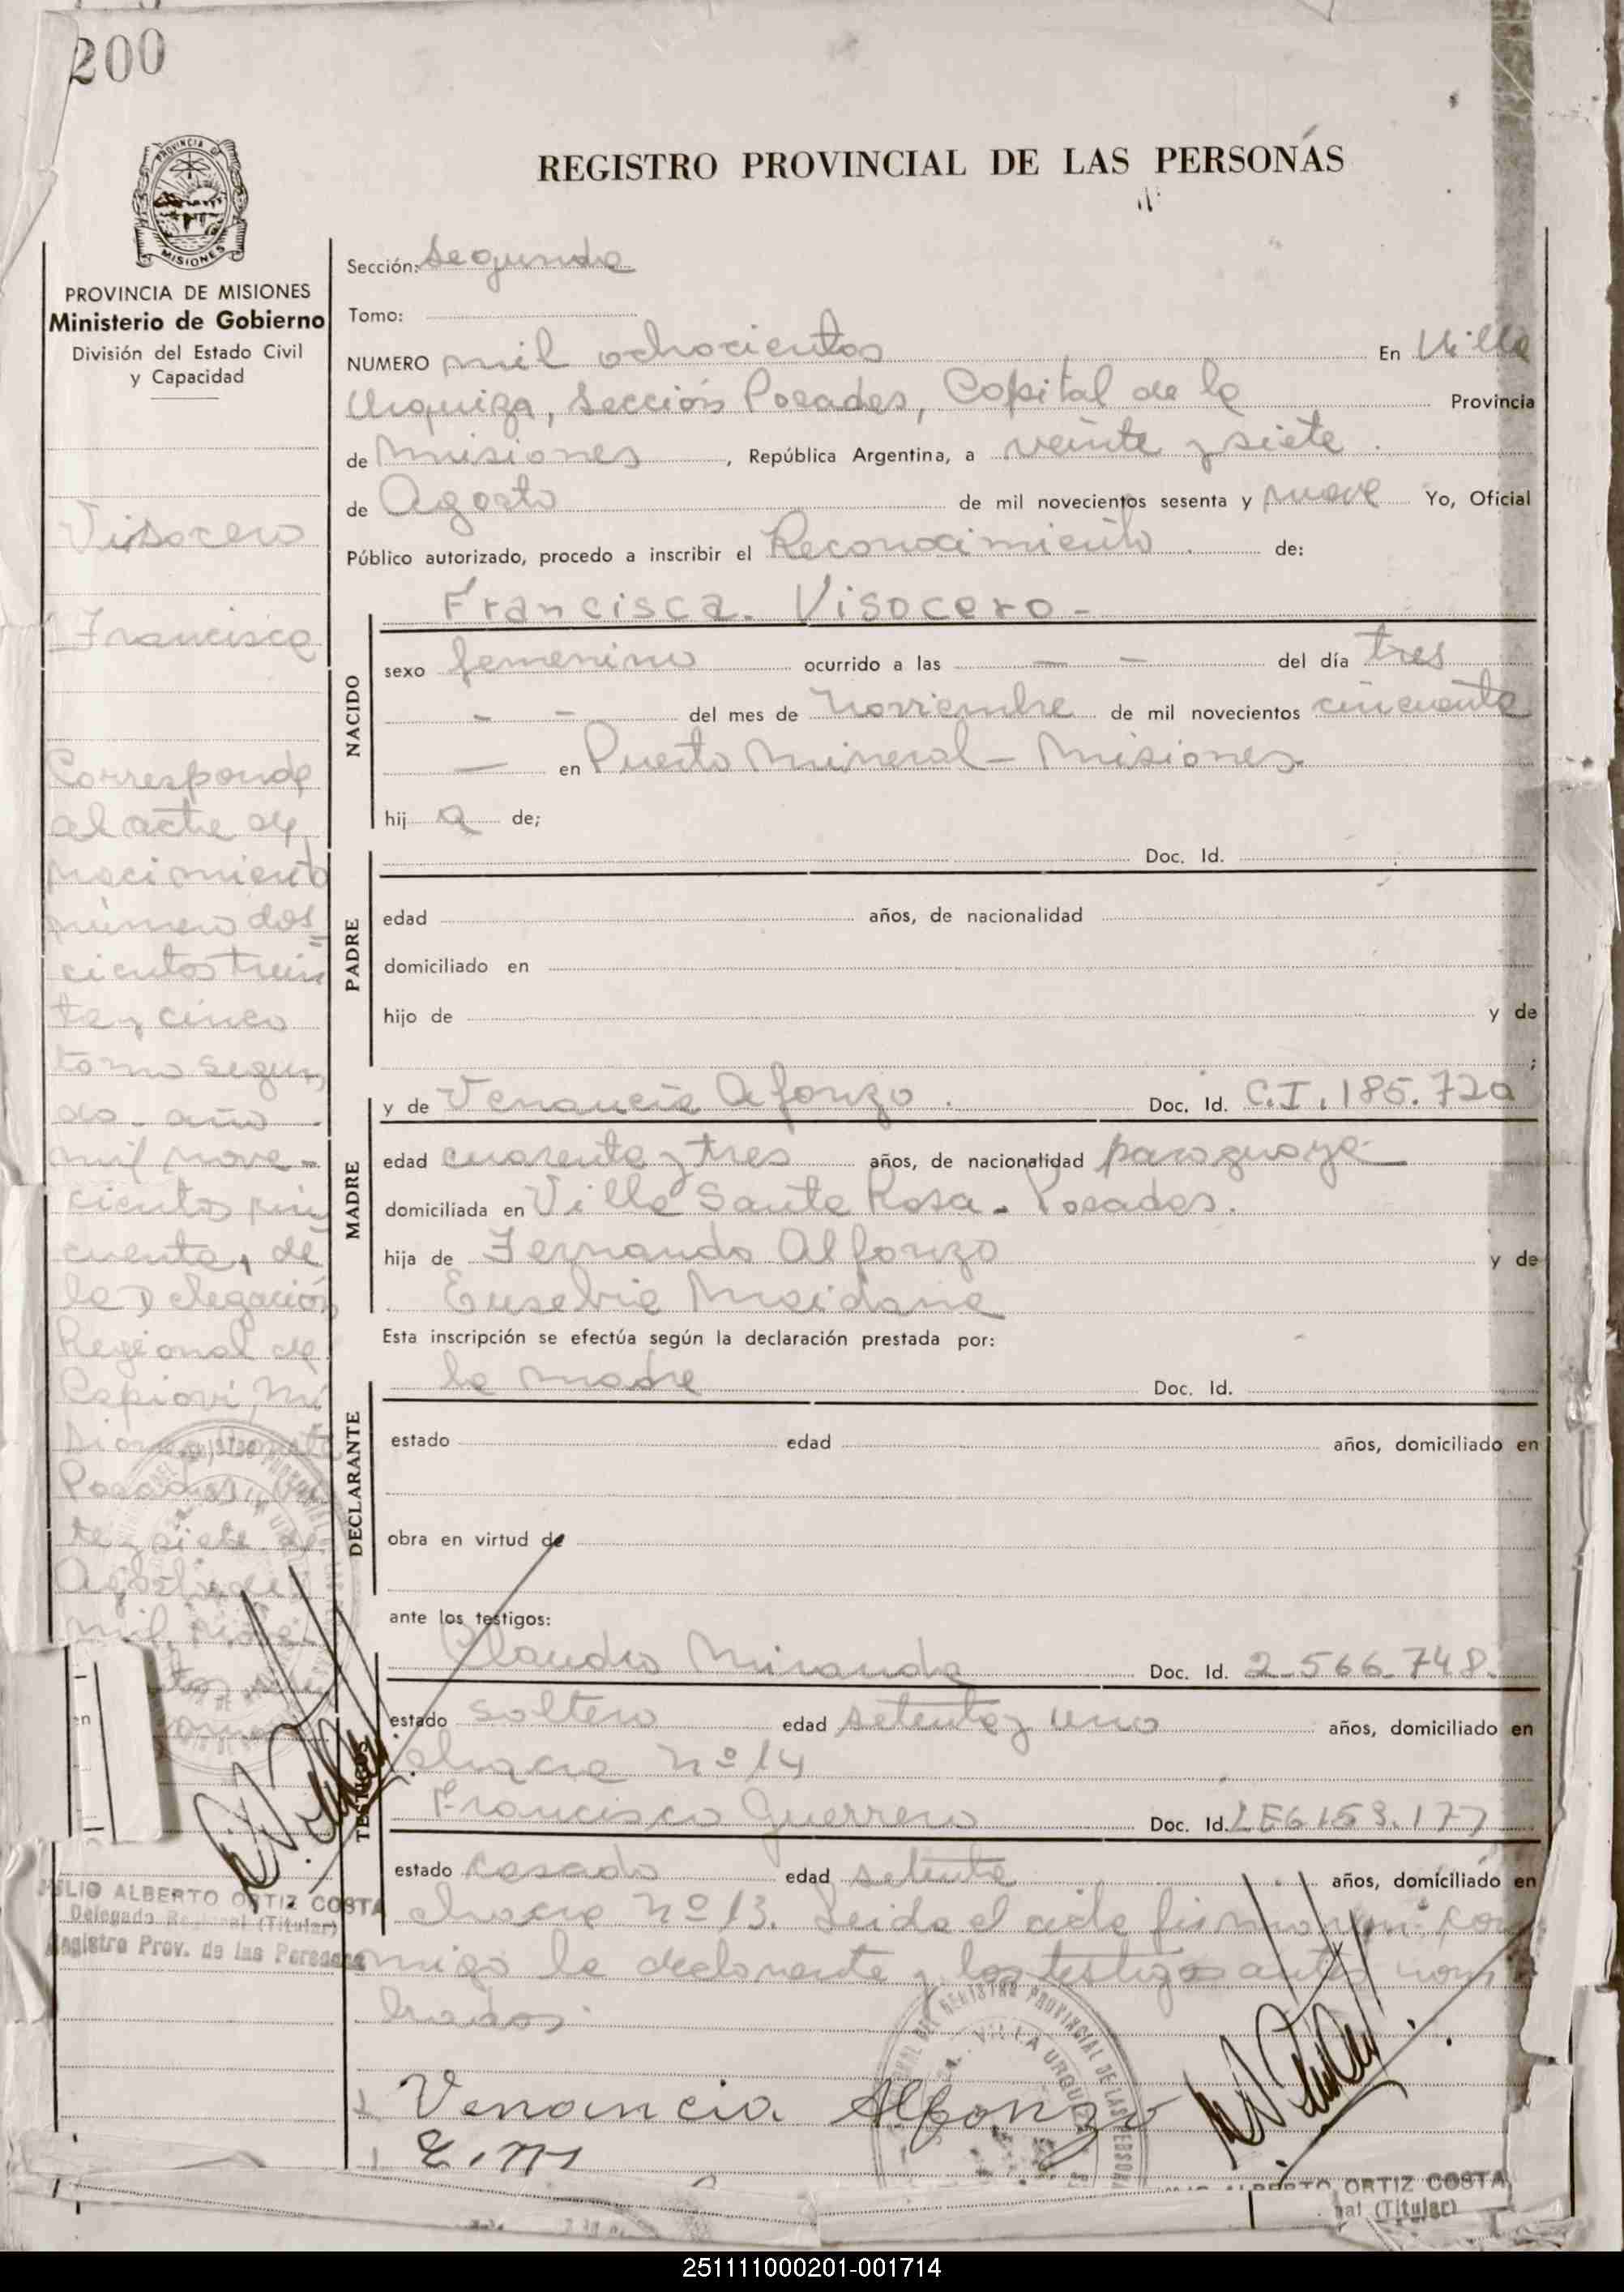 200
REGISTRO PROVINCIAL DE LAS PERSONAS
PROVINCIA DE MISIONES
Ministerio de Gobierno
División del Estado Civil
y Capacidad
Visocero
Francisca
Corresponde
al acta de
nacimiento
número dos=
cientos trein
ta y cinco
tomo segun
do. año
mil nove-
cientos cin
cuenta, de
la Delegación
Regional de
Capiovi, Mi
Posadas,
te y siete de
Agosto de
mil nove
JULIO ALBERTO ORTIZ COSTA
Delegado Regional (Titular)
Registro Prov. de las Personas
Sección: Segunda
Tomo:
NUMERO mil ochocientos En Villa
Urquiza, Sección Posadas, Capital de la Provincia
de Misiones, República Argentina, a veinte y siete
de Agosto de mil novecientos sesenta y nueve Yo, Oficial
Público autorizado, procedo a inscribir el Reconocimiento de:
NACIDO
Francisca. Visocero-
sexo femenino ocurrido a las — — del día tres
- - del mes de noviembre de mil novecientos cincuenta
— en Puerto Mineral - Misiones.
hij a de;
PADRE
Doc. Id.
edad años, de nacionalidad
domiciliado en
hijo de y de
;
MADRE
y de Venancia Afonzo. Doc. Id. C.I. 185.720
edad cuarenta y tres años, de nacionalidad paraguaya
domiciliada en Villa Santa Rosa. Posadas.
hija de Fernando Alfonzo y de
Eusebia Maidana
Esta inscripción se efectúa según la declaración prestada por:
DECLARANTE
la madre Doc. Id.
estado edad años, domiciliado en
obra en virtud de
ante los testigos:
TESTIGOS
Claudio Miranda Doc. Id. 2.566.748.
estado soltero edad setenta y uno años, domiciliado en
chacra nº 14
Francisco Guerrero Doc. Id. LE6153.177
estado casado edad setenta años, domiciliado en
chacra Nº 13. Leida el acta firman con
migo la declarante y los testigos antes nom
brados.
Venancia Alfonzo
ORTIZ COSTA
(Titular)
251111000201-001714